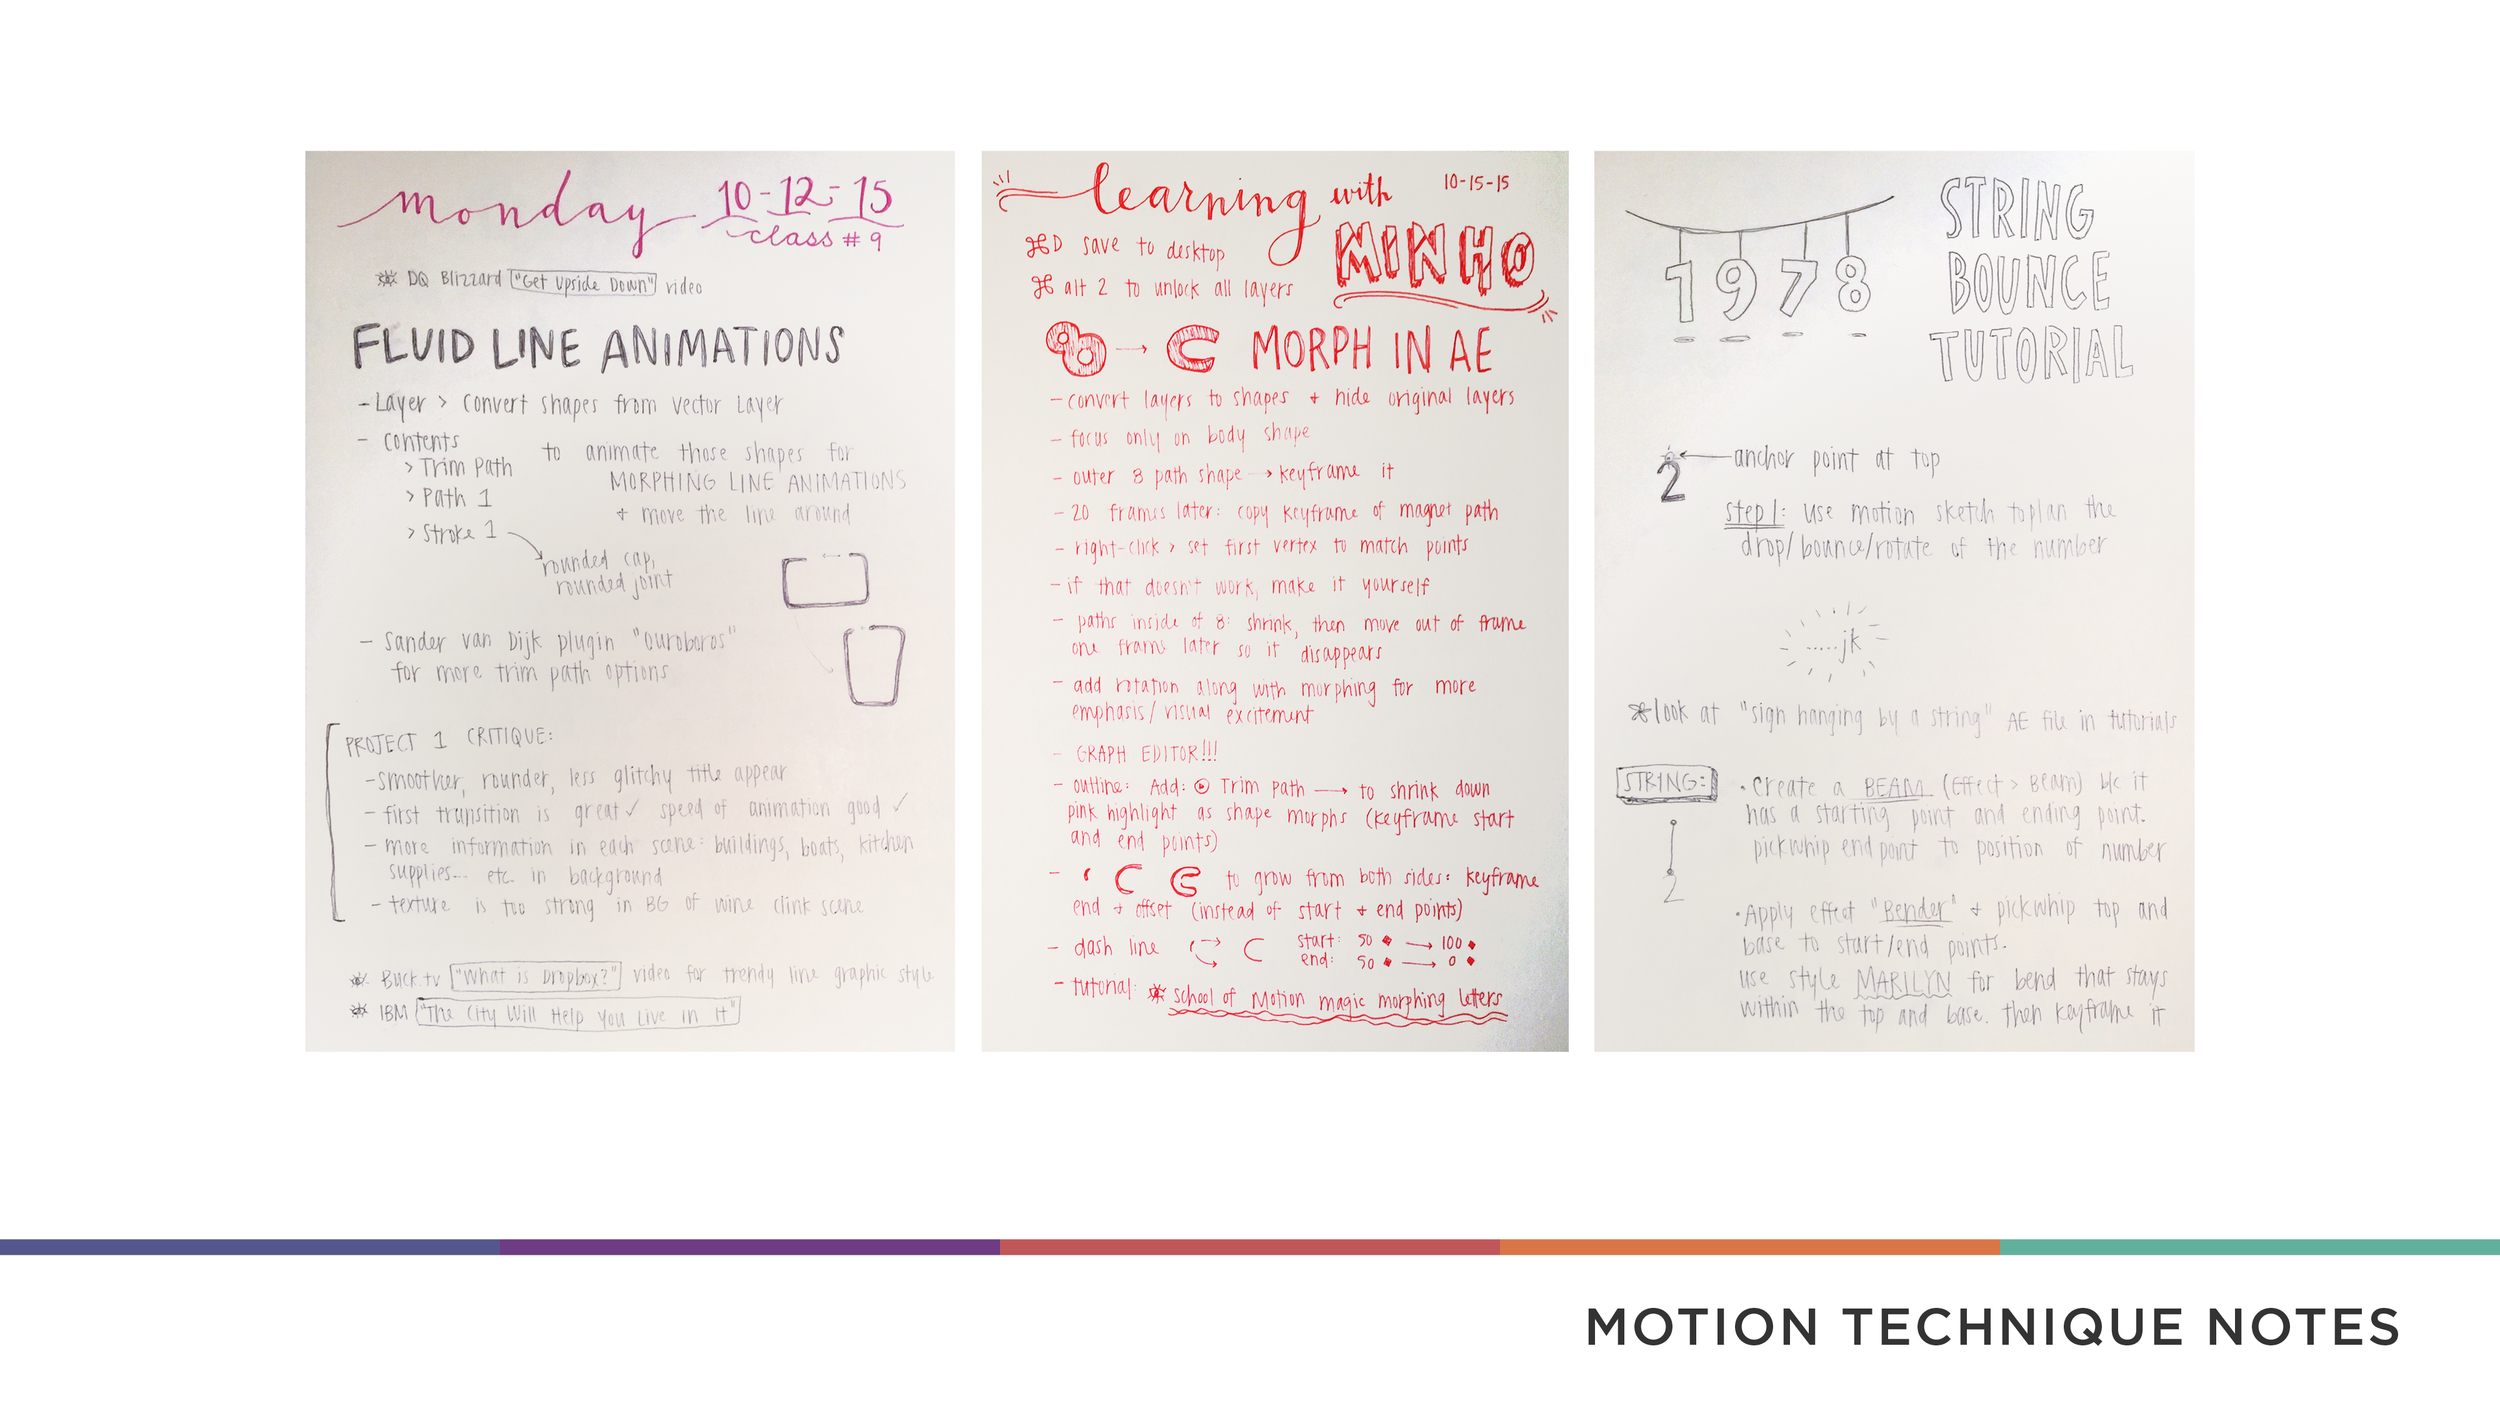 monday 10-12-15
class #9
DQ Blizzard "Get Upside Down" video
FLUID LINE ANIMATIONS
- Layer > Convert shapes from vector Layer
- contents
> Trim Path
> Path 1
> Stroke 1
to animate those shapes for
MORPHING LINE ANIMATIONS
+ move the line around
rounded cap,
rounded joint
- Sander van Dijk plugin "Ouroboros"
for more trim path options
PROJECT 1 CRITIQUE:
- smoother, rounder, less glitchy title appear
- first transition is great ✓ speed of animation good ✓
- more information in each scene: buildings, boats, kitchen
supplies... etc. in background
- texture is too strong in BG of wine clink scene
Buck.tv "What is Dropbox?" video for trendy line graphic style
IBM "The City Will Help You Live in It"
learning with
10-15-15
MINHO
⌘D save to desktop
⌘ alt 2 to unlock all layers
8 → C MORPH IN AE
- convert layers to shapes + hide original layers
- focus only on body shape
- outer 8 path shape → keyframe it
- 20 frames later: copy keyframe of magnet path
- right-click > set first vertex to match points
- if that doesn't work, make it yourself
- paths inside of 8: shrink, then move out of frame
one frame later so it disappears
- add rotation along with morphing for more
emphasis/visual excitement
- GRAPH EDITOR!!!
- outline: Add: Trim Path → to shrink down
pink highlight as shape morphs (keyframe start
and end points)
- to grow from both sides: keyframe
end + offset (instead of start + end points)
- dash line
start: 50 → 100
end: 50 → 0
- tutorial: School of Motion magic morphing letters
1978
STRING
BOUNCE
TUTORIAL
2
anchor point at top
step 1: use motion sketch to plan the
drop/bounce/rotate of the number
.....jk
*look at "sign hanging by a string" AE file in tutorials
STRING:
• Create a BEAM (Effect > Beam) b/c it
has a starting point and ending point.
pickwhip endpoint to position of number
2
• Apply effect "Bender" + pickwhip top and
base to start/end points.
use style MARILYN for bend that stays
within the top and base. then keyframe it
MOTION TECHNIQUE NOTES